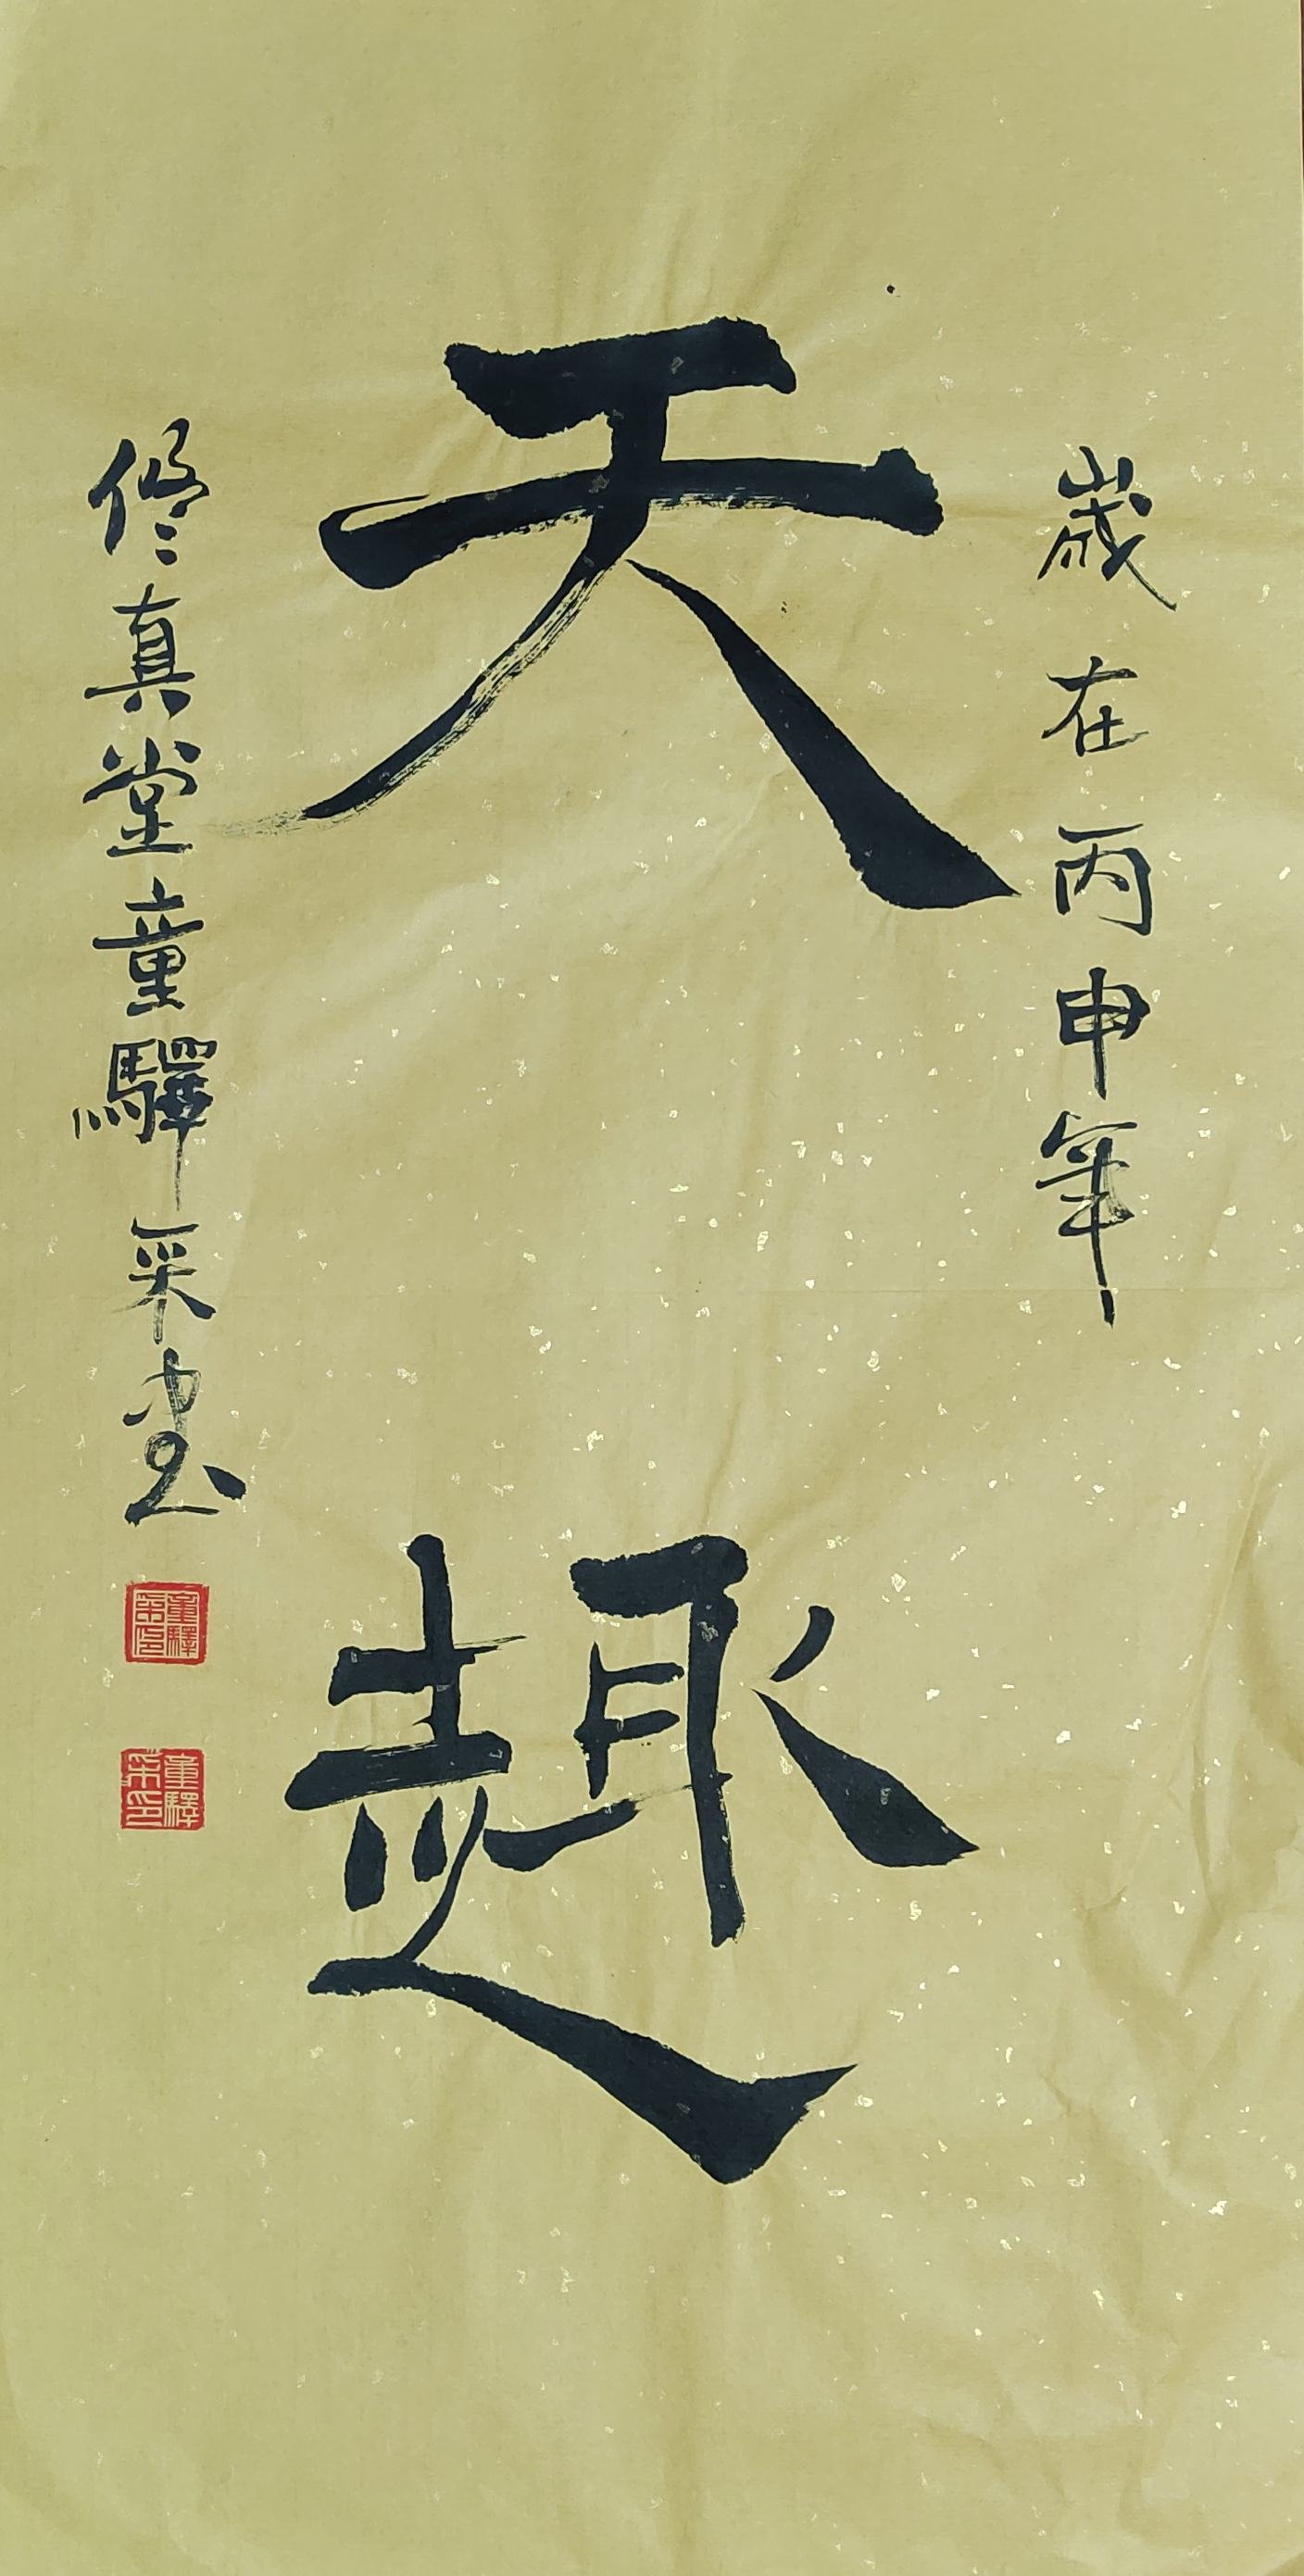 歲在丙申年
天趣
修真堂童驛采書
童驛采印
童驛采印